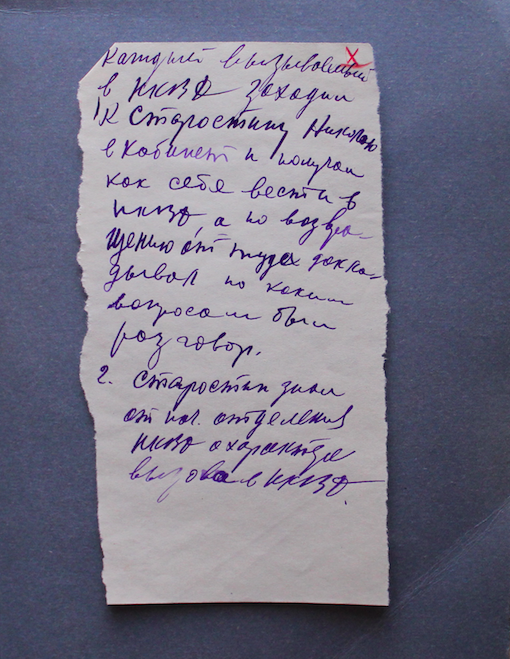 Каждый вызываемый
в НКВД заходил
1) К Старостину Николаю
в кабинет и получал
как себя вести в
НКВД, а по возвра-
щению от туда докла-
дывал по каким
вопросам был
разговор.
2. Старостин знал
от нач. отделения
НКВД о характере
вызова в НКВД.